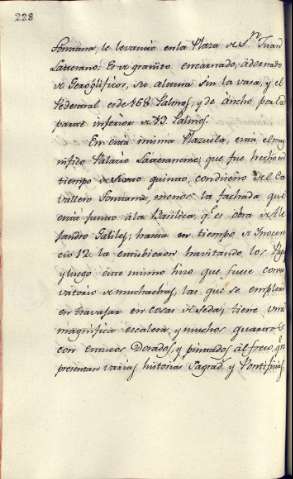 228
Fontana, le levantó en la Plaza de Sn. Juan
Laterano: Es de granito encarnado, adornado
de Geroglificos, su altura sin la vasa, y el
Pedestal es de 168 Palmos, y de ancho por la
parte inferior de 13. Palmos.
En esta misma Plazuela, está el mag
nifico Palacio Lateranense, que fue hecho en
tiempo de Sixto quinto, con diseño del Ca
vallero Fontana, menos la fachada que
está junto á la Basilica, qe. es obra de Ale
xandro Galiley; hasta en tiempo de Inocen
cio 12. la estubieron havitando los
y luego este mismo hizo que fuese cons
vatorio de muchachas, las que se emplean
en travajar en cosas de seda; tiene una
magnifica escalera, y muchos quartos
con techos Dorados, y pintados al fresco, qe.
presentan varias historias Sagrads. y Pontificias